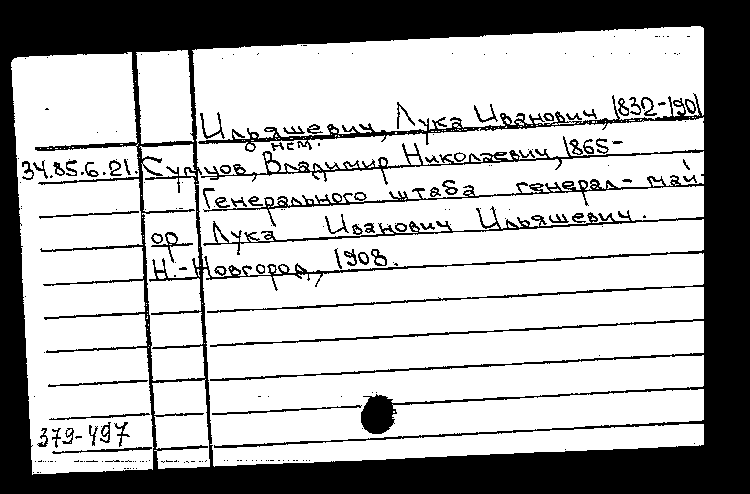 Ильяшевич, Лука Иванович, 1832-1901
о нем.
34.85.6.21. Сумцов, Владимир Николаевич, 1865-
Генерального штаба генерал-май-
ор Лука Иванович Ильяшевич.
Н.-Новгород, 1908.
379-497